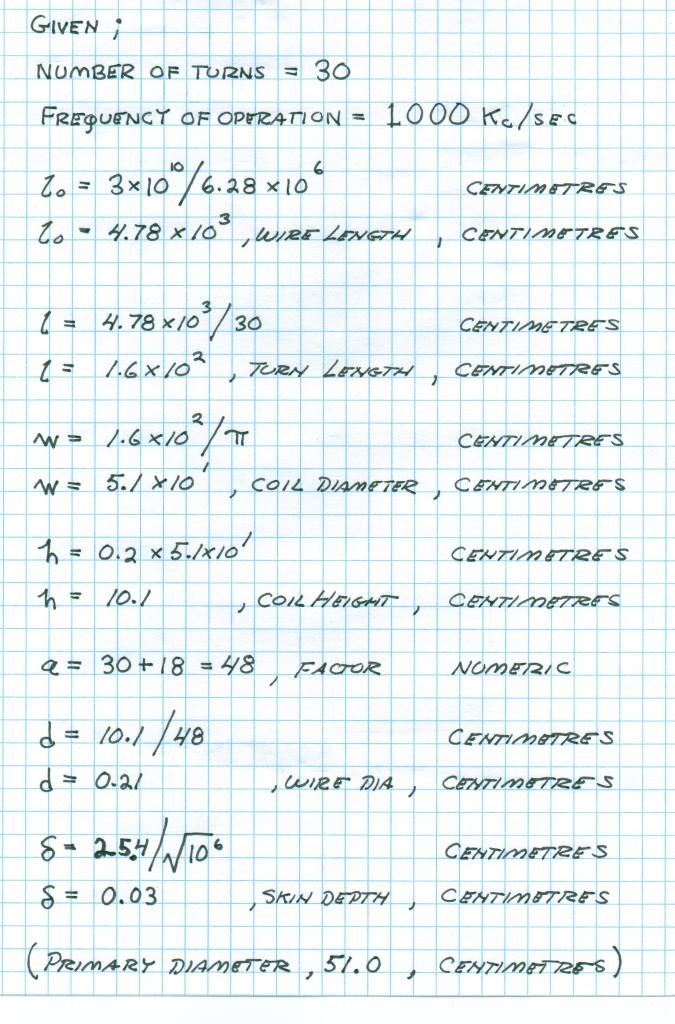 GIVEN ;
NUMBER OF TURNS = 30
FREQUENCY OF OPERATION = 1000 Kc/SEC
l₀ = 3×10¹⁰/6.28 ×10⁶ CENTIMETRES
l₀ = 4.78 × 10³, WIRE LENGTH, CENTIMETRES
l = 4.78 ×10³/30 CENTIMETRES
l = 1.6 × 10², TURN LENGTH, CENTIMETRES
w = 1.6 ×10²/π CENTIMETRES
w = 5.1 ×10¹, COIL DIAMETER, CENTIMETRES
h = 0.2 × 5.1×10¹ CENTIMETRES
h = 10.1, COIL HEIGHT, CENTIMETRES
a = 30 + 18 = 48, FACTOR NUMERIC
d = 10.1 / 48 CENTIMETRES
d = 0.21, WIRE DIA, CENTIMETRES
δ = 25.4/√10⁶ CENTIMETRES
δ = 0.03, SKIN DEPTH, CENTIMETRES
(PRIMARY DIAMETER, 51.0, CENTIMETRES)